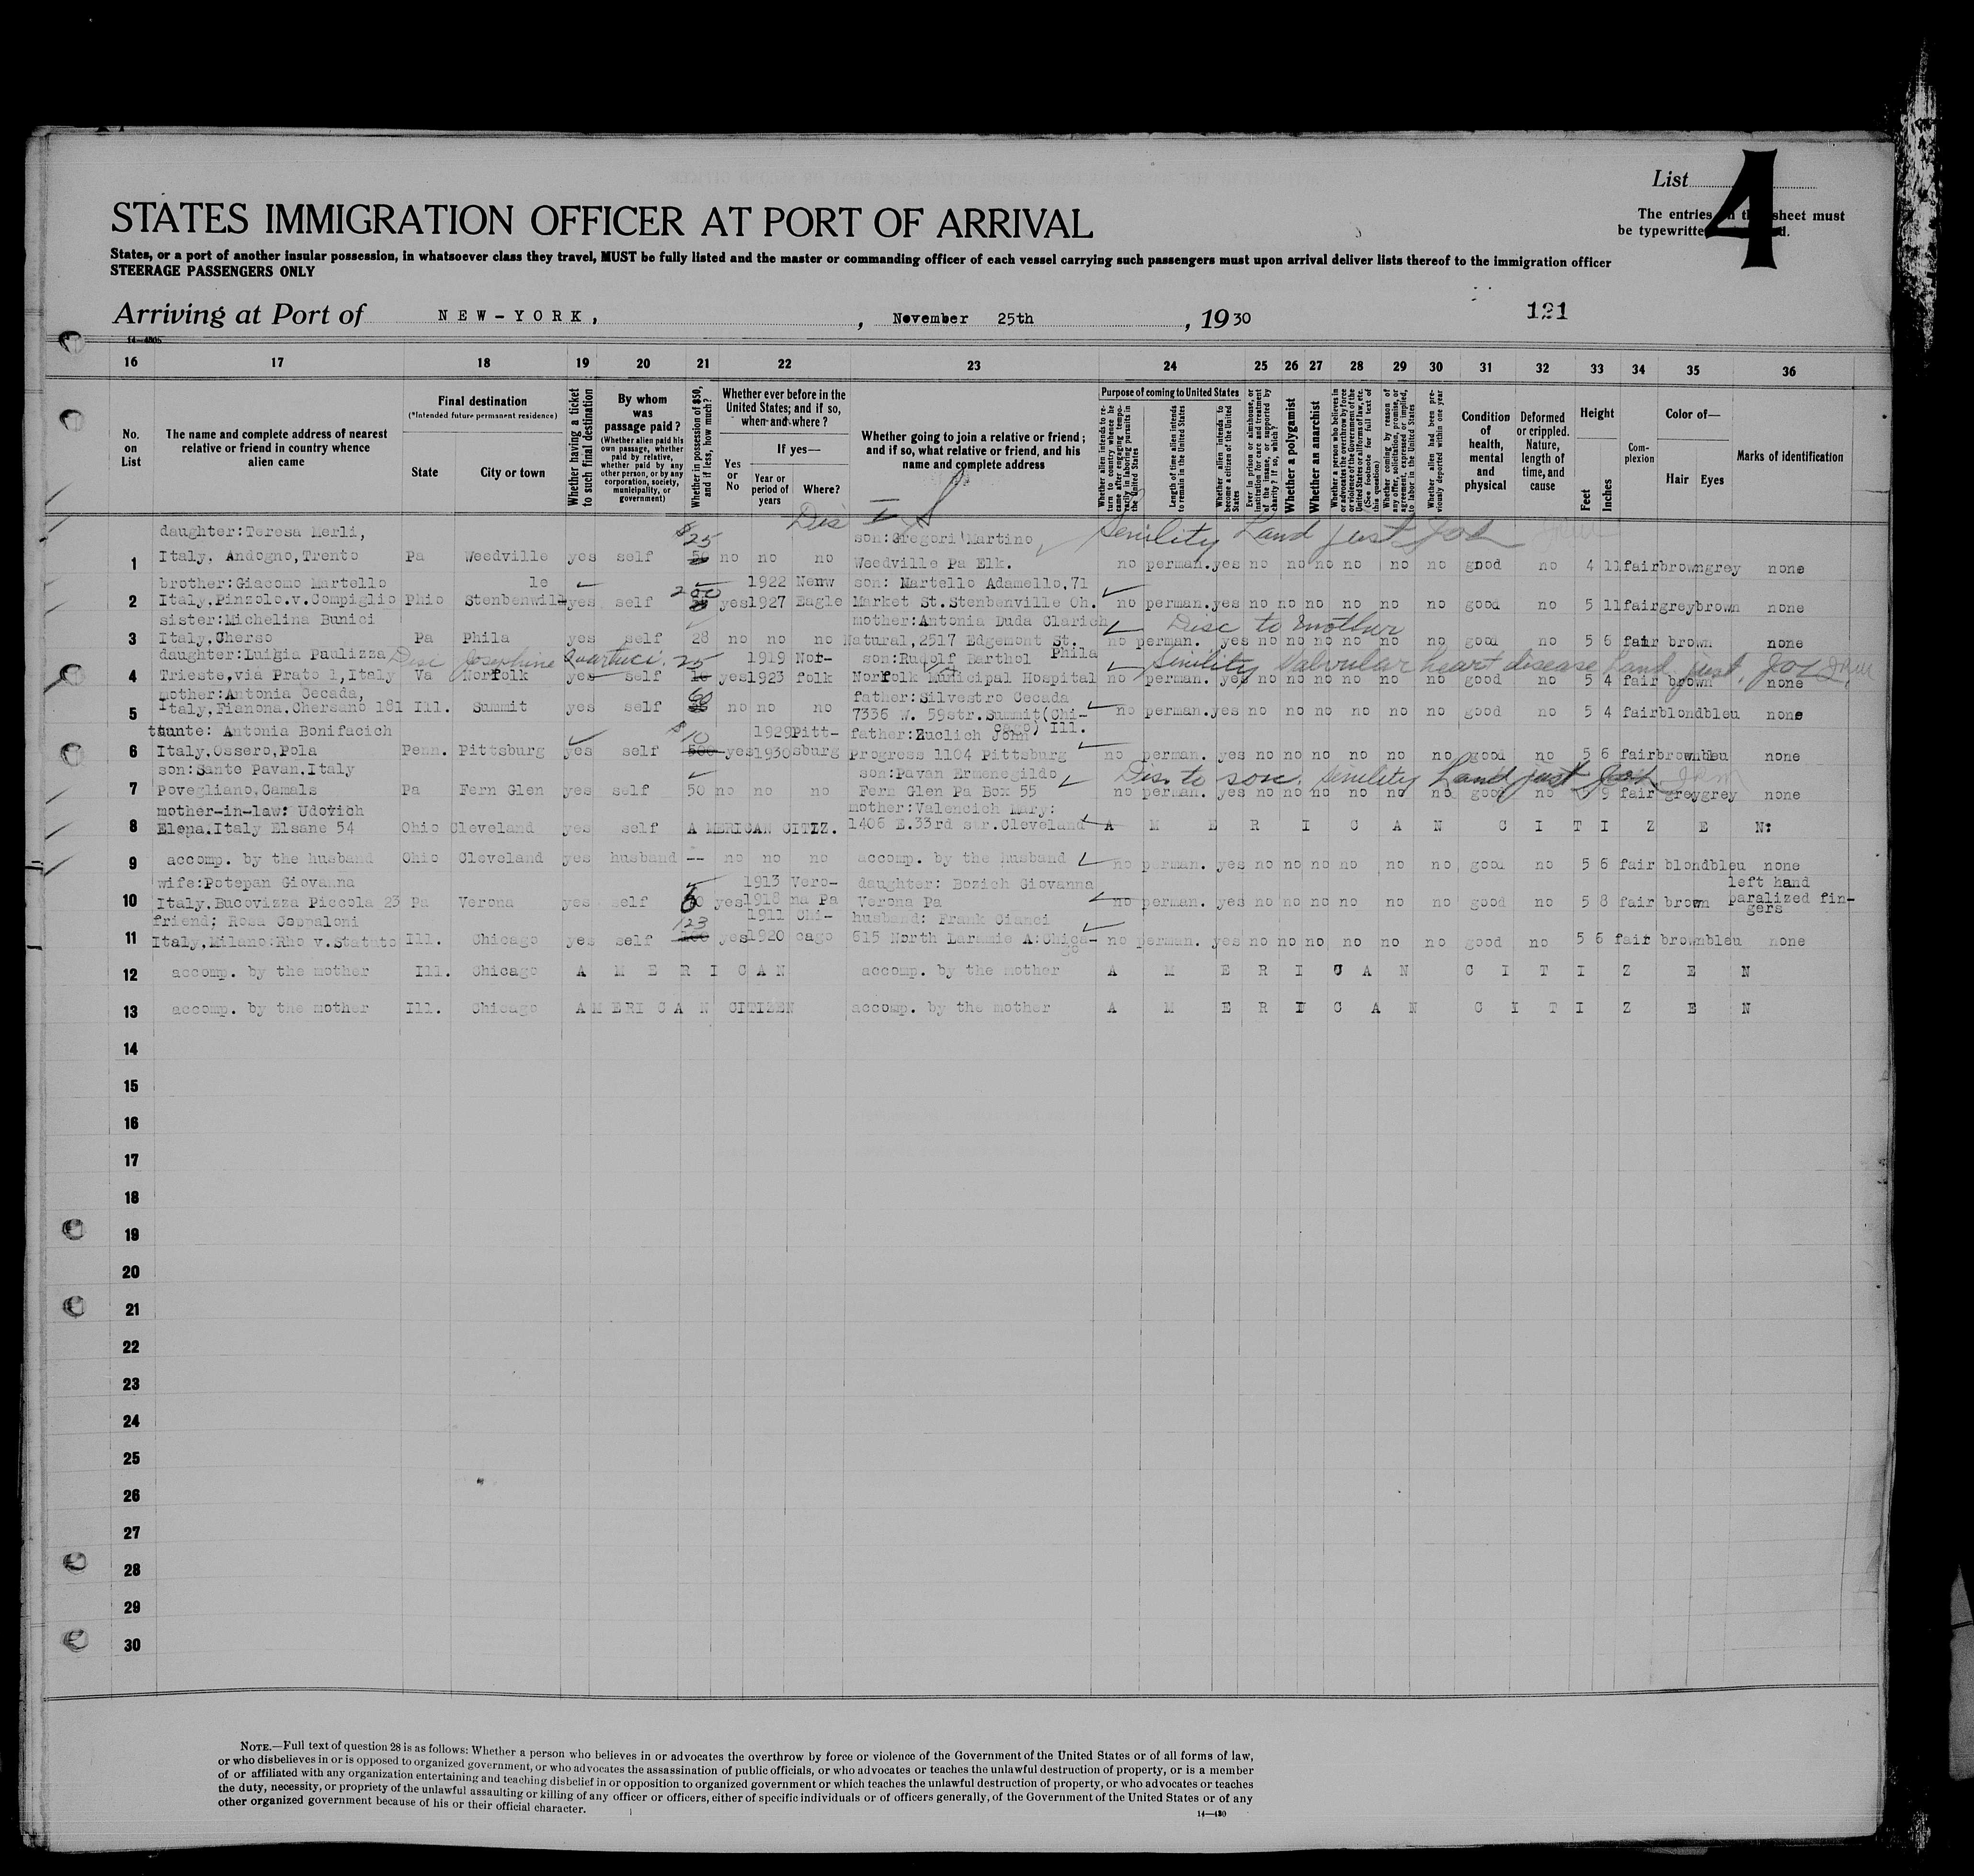 List 4
STATES IMMIGRATION OFFICER AT PORT OF ARRIVAL
The entries sheet must
be typewritte d.
States, or a port of another insular possession, in whatsoever class they travel, MUST be fully listed and the master or commanding officer of each vessel carrying such passengers must upon arrival deliver lists thereof to the immigration officer
STEERAGE PASSENGERS ONLY
Arriving at Port of NEW-YORK, , November 25th , 19 30 121
16 17 18 19 20 21 22 23 24 25 26 27 28 29 30 31 32 33 34 35 36
No. on List
The name and complete address of nearest relative or friend in country whence alien came
Final destination
(*Intended future permanent residence)
State City or town
Whether having a ticket to such final destination
By whom was passage paid?
(Whether alien paid his own passage, whether paid by relative, whether paid by any other person, or by any corporation, society, municipality, or government)
Whether in possession of $50, and if less, how much?
Whether ever before in the United States; and if so, when and where?
If yes—
Yes or No Year or period of years Where?
Whether going to join a relative or friend; and if so, what relative or friend, and his name and complete address
Purpose of coming to United States
Whether alien intends to return to country whence he came after engaging temporarily in laboring pursuits in the United States
Length of time alien intends to remain in the United States
Whether alien intends to become a citizen of the United States
Ever in prison or almshouse, or institution for care and treatment of the insane, or supported by charity? If so, which?
Whether a polygamist
Whether an anarchist
Whether a person who believes in or advocates the overthrow by force or violence of the Government of the United States or all forms of law, etc. (See footnote for full text of this question)
Whether coming by reason of any offer, solicitation, promise, or agreement, expressed or implied, to labor in the United States
Whether alien had been previously deported within one year
Condition of health, mental and physical
Deformed or crippled. Nature, length of time, and cause
Height
Feet Inches
Complexion
Color of—
Hair Eyes
Marks of identification
daughter:Teresa Merli, $25 son:Gregori Martino Senility Land just
1 Italy, Andogno,Trento Pa Weedville yes self 50 no no no Weedville Pa Elk. no perman. yes no no no no no no good no 4 11 fair brown grey none
brother:Giacomo Martello le 200 1922 Neww son: Martello Adamello,71
2 Italy,Pinzolo.v.Compiglio Phio Stenbenwill yes self yes 1927 Eagle Market St.Stenbenville Oh. no perman. yes no no no no no no good no 5 11 fair grey brown none
sister:Michelina Bunici mother:Antonia Duda Clarich Disc to mother
3 Italy.Cherso Pa Phila yes self 28 no no no Natural,2517 Edgemont St. Phila no perman. yes no no no no no no good no 5 6 fair brown none
daughter:Luigia Paulizza Disc Josephine Quartuci. 25 1919 Nor- son:Rudolf Barthol Senility Valvular heart disease Land just.
4 Trieste,via Prato 1,Italy Va Norfolk yes self yes 1923 folk Norfolk Municipal Hospital no perman. yes no no no no no no good no 5 4 fair brown none
mother:Antonia Cecada, 60 father:Silvestro Cecada
5 Italy,Fianona.Chersano 181 Ill. Summit yes self no no no 7336 W. 59str.Summit(Chi-cago) Ill. no perman. yes no no no no no no good no 5 4 fair blond bleu none
tante: Antonia Bonifacich $10 1929 Pitt- father:Zuclich John
6 Italy.Ossero,Pola Penn. Pittsburg yes self 500 yes 1930 sburg Progress 1104 Pittsburg no perman. yes no no no no no no good no 5 6 fair brown bleu none
son:Sante Pavan.Italy son:Pavan Ermenegildo Dis. to son. Senility Land just
7 Povegliano,Camals Pa Fern Glen yes self 50 no no no Fern Glen Pa Box 55 no perman. yes no no no no no no good no 5 9 fair grey grey none
mother-in-law: Udovich mother:Valencich Mary:
8 Elena.Italy Elsane 54 Ohio Cleveland yes self AMERICAN CITIZ. 1406 E.33rd str.Cleveland A M E R I C A N C I T I Z E N:
9 accomp. by the husband Ohio Cleveland yes husband -- no no no accomp. by the husband no perman. yes no no no no no no good no 5 6 fair blond bleu none
wife:Potepan Giovanna 1913 Vero- daughter: Bozich Giovanna left hand
10 Italy,Bucovizza Piccola 23 Pa Verona yes self yes 1918 na Pa Verona Pa no perman. yes no no no no no no good no 5 8 fair brown paralized fin-gers
friend; Rosa Coppaloni 123 1911 Chi- husband: Frank Cianci
11 Italy,Milano:Rho v.Statuto Ill. Chicago yes self yes 1920 cago 615 North Laramie A:Chica-go no perman. yes no no no no no no good no 5 6 fair brown bleu none
12 accomp. by the mother Ill. Chicago A M E R I C A N accomp. by the mother A M E R I C A N C I T I Z E N
13 accomp. by the mother Ill. Chicago AMERICAN CITIZEN accomp. by the mother A M E R I C A N C I T I Z E N
14
15
16
17
18
19
20
21
22
23
24
25
26
27
28
29
30
NOTE.—Full text of question 28 is as follows: Whether a person who believes in or advocates the overthrow by force or violence of the Government of the United States or of all forms of law,
or who disbelieves in or is opposed to organized government, or who advocates the assassination of public officials, or who advocates or teaches the unlawful destruction of property, or is a member
of or affiliated with any organization entertaining and teaching disbelief in or opposition to organized government or which teaches the unlawful destruction of property, or who advocates or teaches
the duty, necessity, or propriety of the unlawful assaulting or killing of any officer or officers, either of specific individuals or of officers generally, of the Government of the United States or of any
other organized government because of his or their official character.
14—430